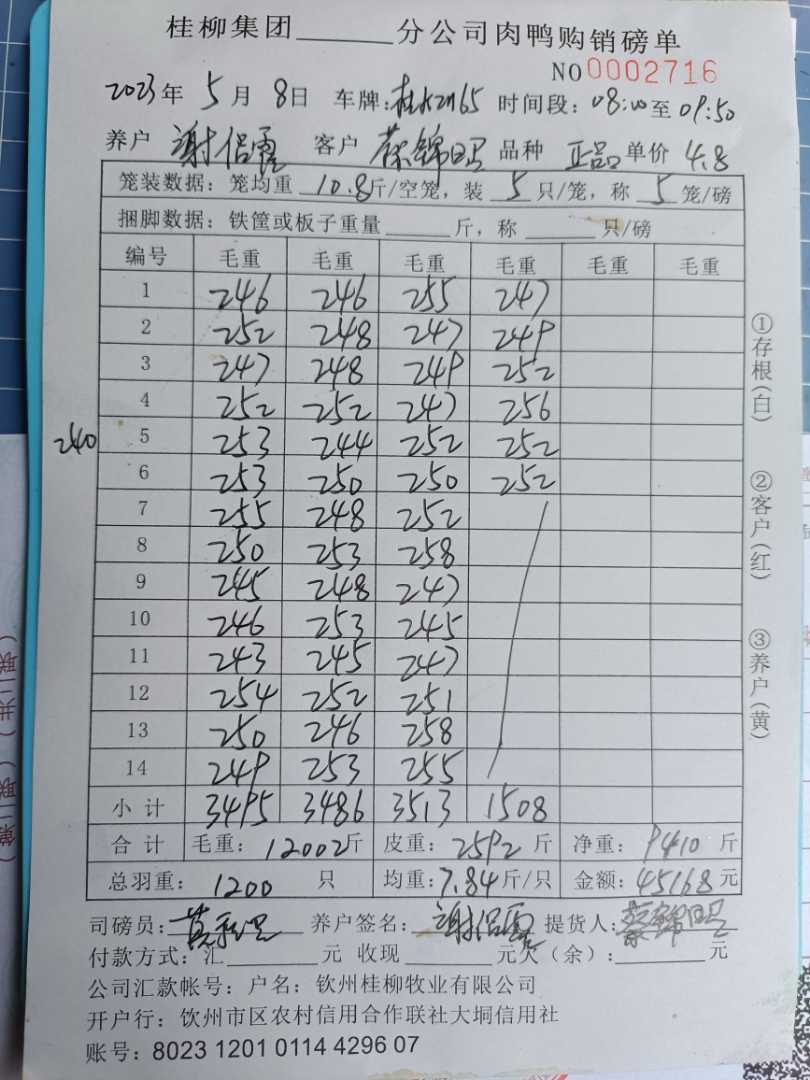 桂柳集团______分公司肉鸭购销磅单
NO 0002716
2023年 5月 8日 车牌: 时间段: 08:00至09:50
养户 谢侣霞 客户 蔡锦昭 品种 正品 单价 4.8
笼装数据: 笼均重 10.8斤/空笼, 装 5 只/笼, 称 5 笼/磅
捆脚数据: 铁筐或板子重量______斤, 称______只/磅
编号 毛重 毛重 毛重 毛重 毛重 毛重
1 246 246 255 247
2 252 248 247 249
3 247 248 249 252
4 252 252 247 256
240
5 253 244 252 252
6 253 250 250 252
7 255 248 252
8 250 253 258
9 245 248 247
10 246 253 245
11 243 245 247
12 254 252 251
13 250 246 258
14 249 253 255
小计 3495 3486 3513 1508
合计 毛重: 12002斤 皮重: 2592斤 净重: 9410斤
总羽重: 1200 只 均重: 7.84斤/只 金额: 45168元
司磅员: 养户签名: 谢侣霞 提货人: 蔡锦昭
付款方式: 汇______元 收现______元欠(余):______元
公司汇款帐号: 户名: 钦州桂柳牧业有限公司
开户行: 钦州市区农村信用合作联社大垌信用社
账号: 8023 1201 0114 4296 07
①存根(白)
②客户(红)
③养户(黄)